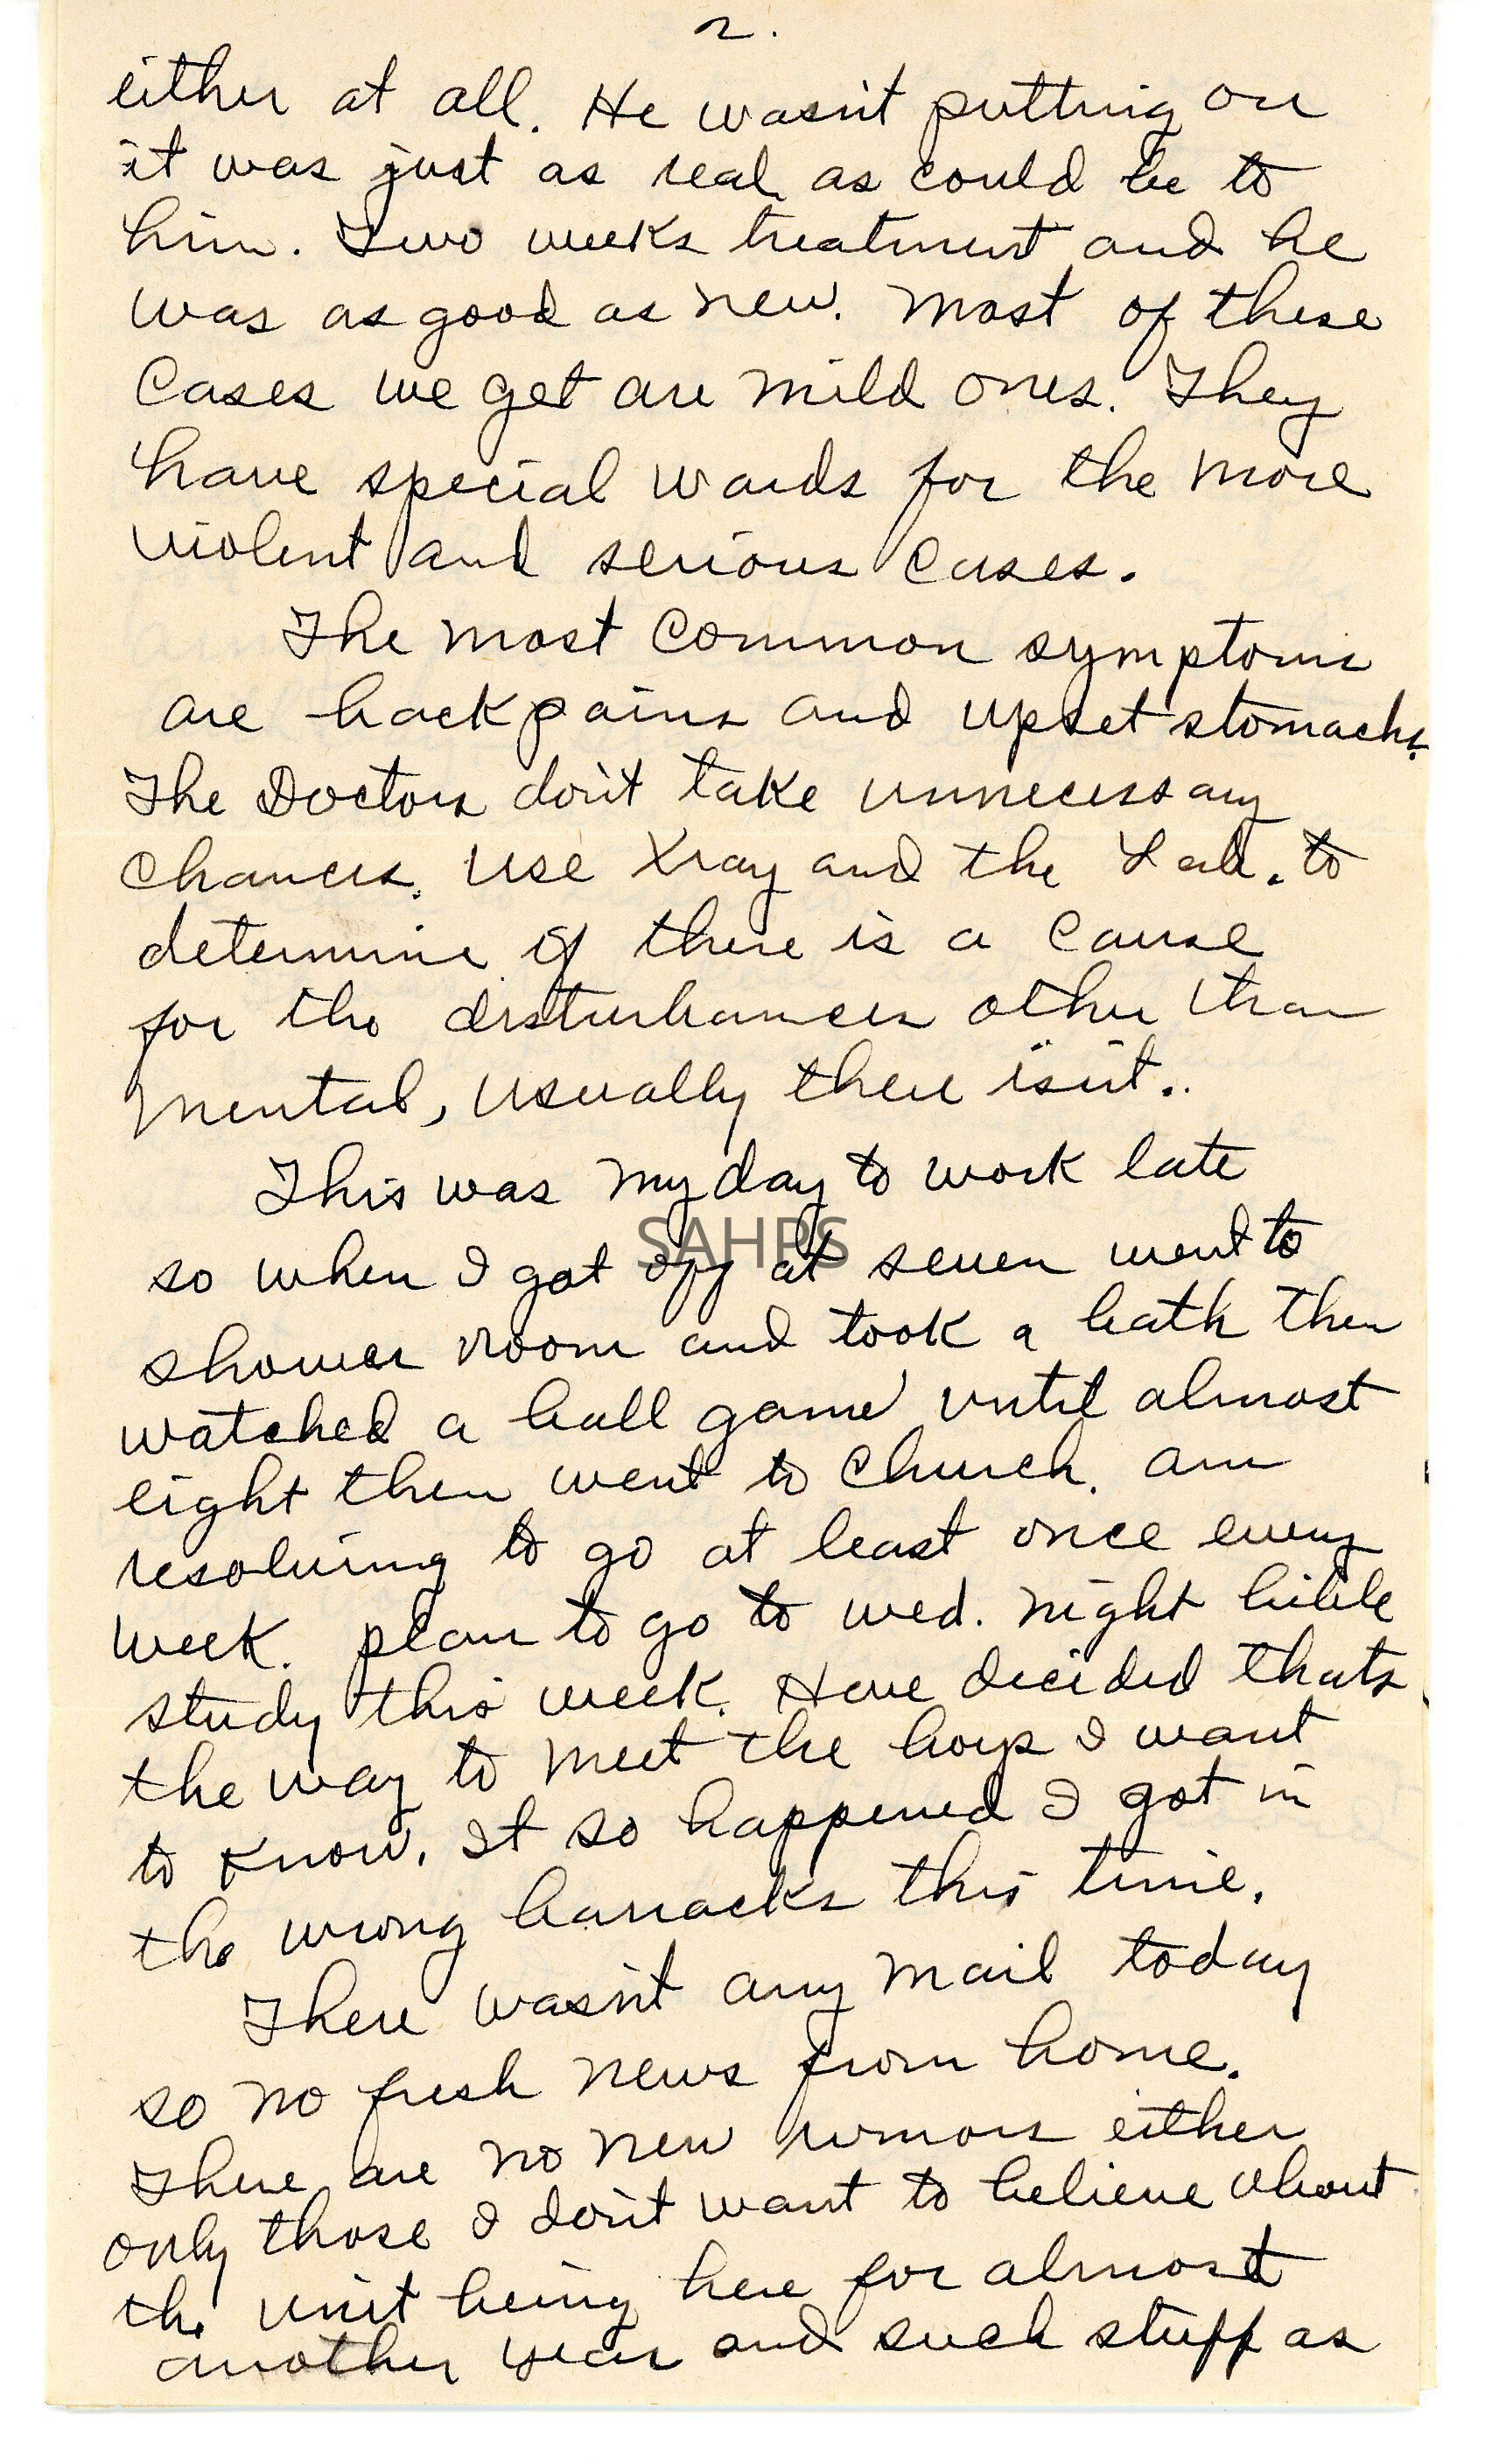 2.
either at all. He wasn't putting on
it was just as real as could be to
him. Two weeks treatment and he
was as good as new. Most of these
cases we get are mild ones. They
have special wards for the more
violent and serious cases.
The most common symptoms
are back pains and upset stomachs.
The Doctors don't take unnecessary
chances. Use Xray and the Lab. to
determine if there is a cause
for the disturbances other than
mental, usually there isn't..
This was my day to work late
SAHPS
so when I got off at seven went to
shower room and took a bath then
watched a ball game until almost
eight then went to Church. am
resolving to go at least once every
week. plan to go to wed. night bible
study this week. Have decided thats
the way to meet the boys I want
to know. It so happened I got in
the wrong barracks this time.
There wasn't any mail today
so no fresh news from home.
There are no new rumors either
only those I don't want to believe about
the unit being here for almost
another year and such stuff as